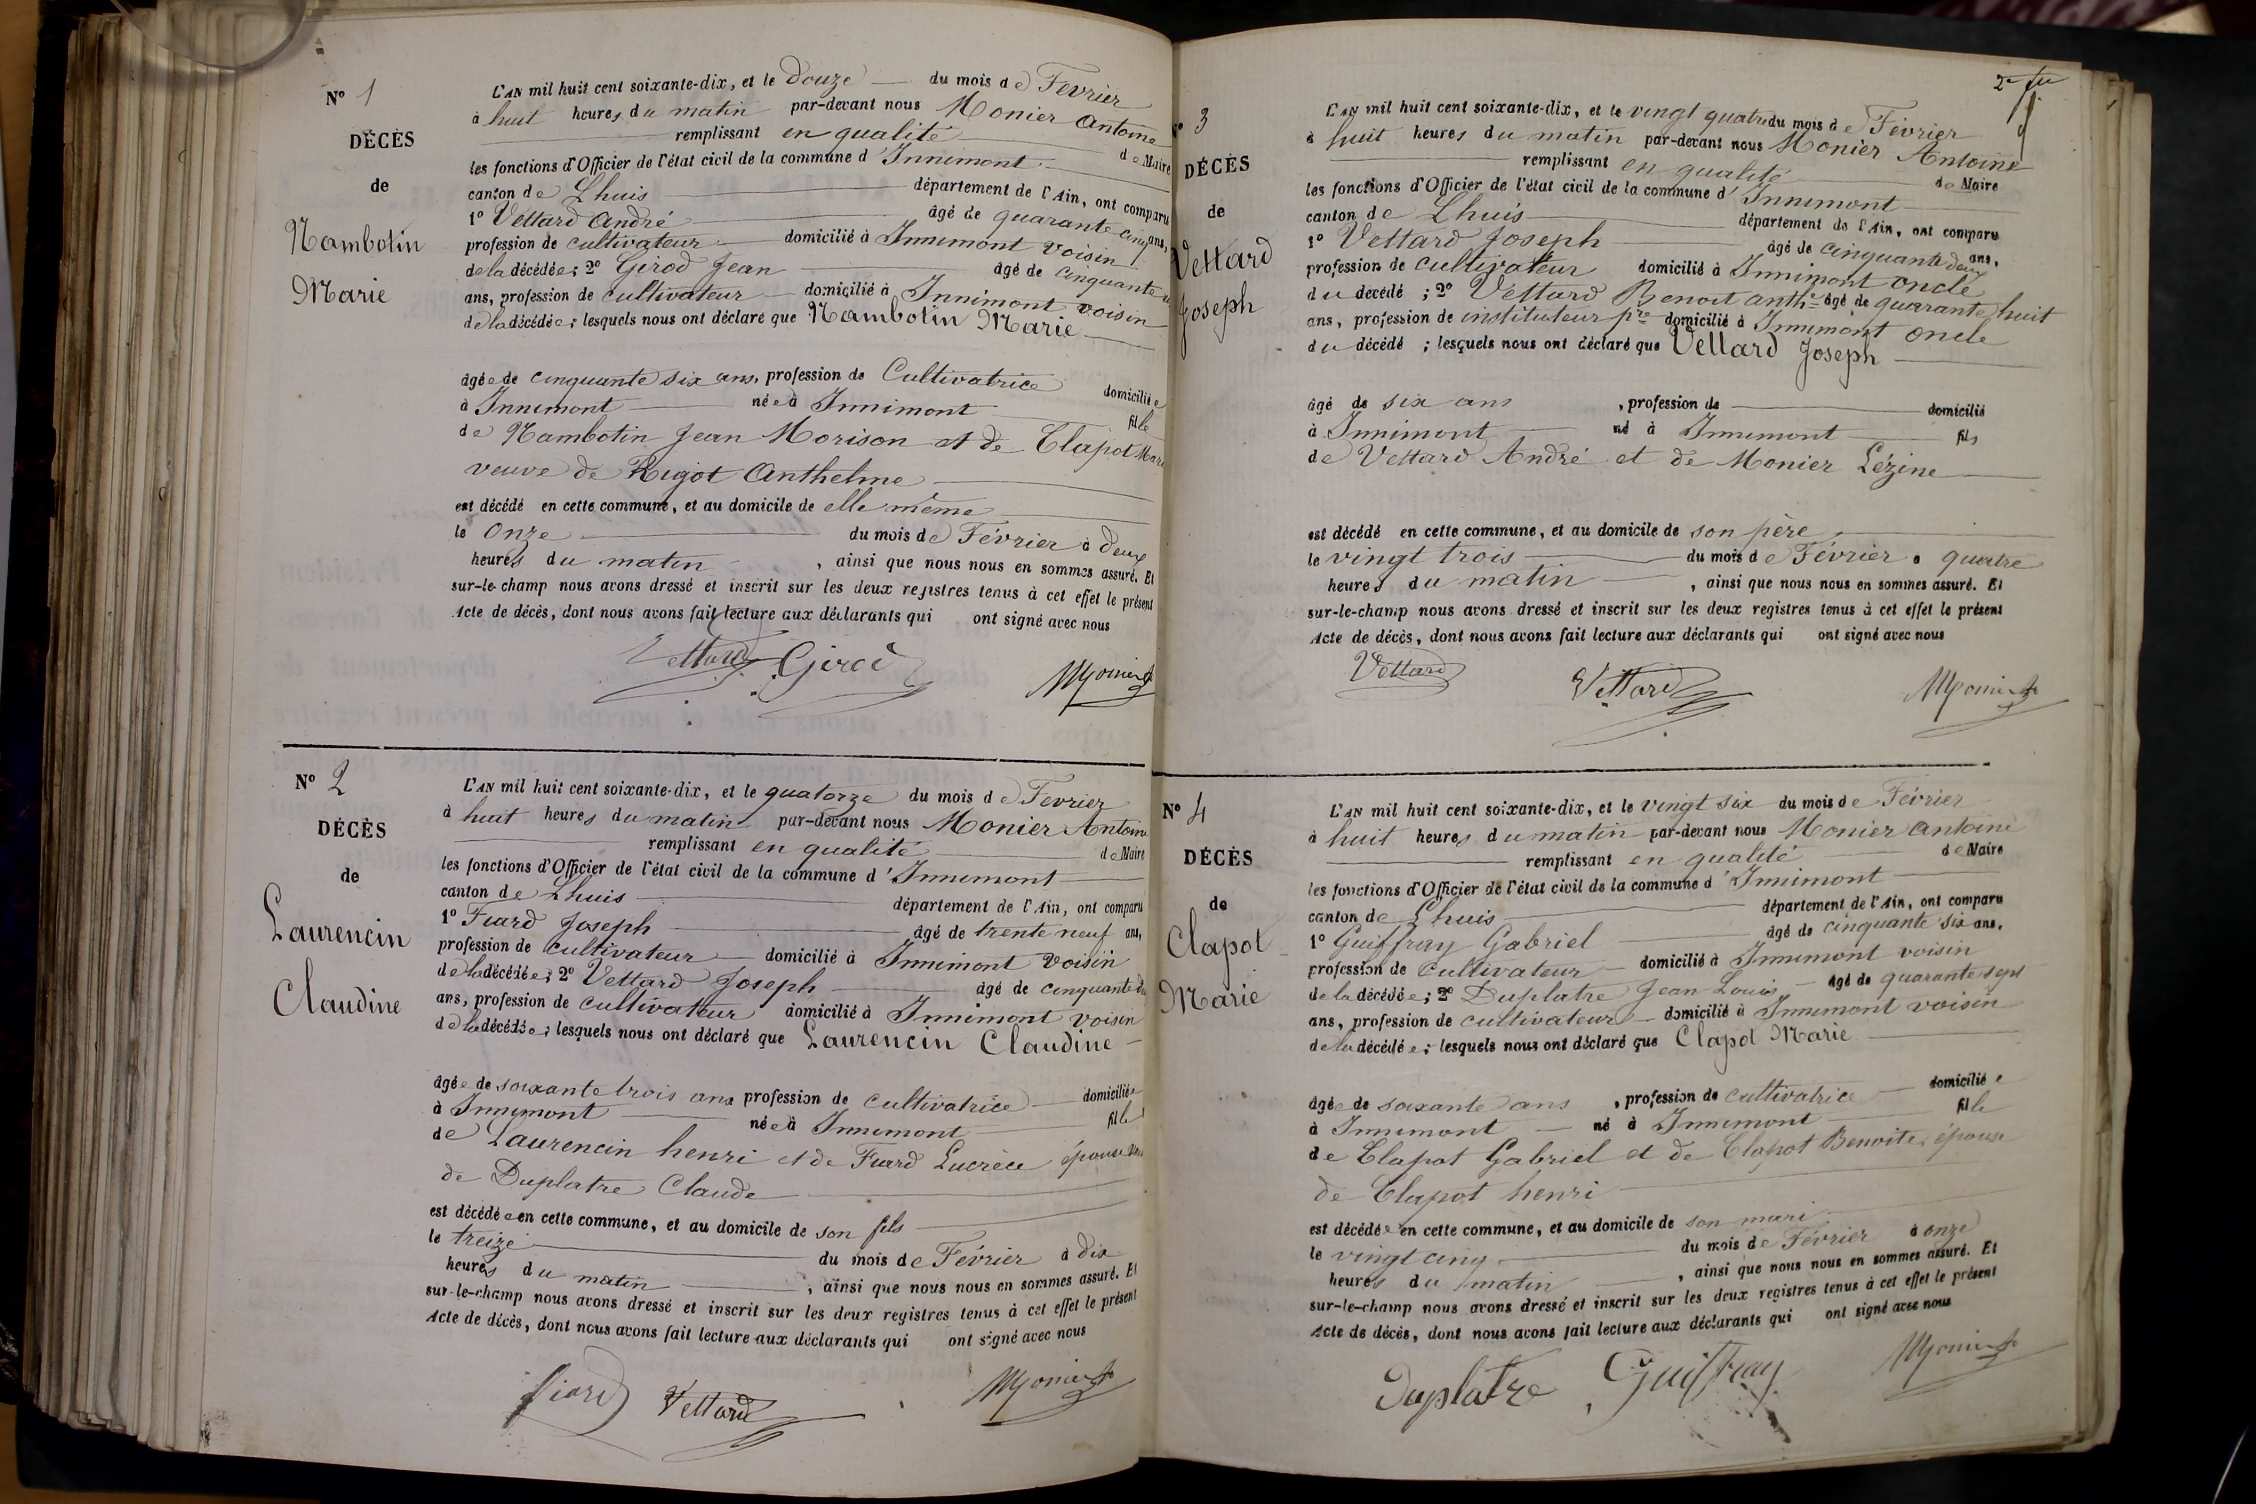 Nº 1
DÉCÈS
de
Nambotin
Marie
L'AN mil huit cent soixante-dix, et le douze du mois de Fevrier
à huit heures du matin par-devant nous Monier Antoine
remplissant en qualité de Maire
les fonctions d'Officier de l'état civil de la commune d'Innimont
canton de Lhuis département de l'Ain, ont comparu
1º Vettard André âgé de quarante cinq ans,
profession de cultivateur domicilié à Innimont voisin
de la décédée; 2º Girod Jean âgé de cinquante
ans, profession de cultivateur domicilié à Innimont voisin
de la décédée; lesquels nous ont déclaré que Nambotin Marie
âgée de cinquante six ans, profession de Cultivatrice domiciliée
à Innimont née à Innimont fille
de Nambotin Jean Morison et de Clapot Marie
veuve de Rigot Anthelme
est décédé en cette commune, et au domicile de elle même
le onze du mois de Février à deux
heures du matin, ainsi que nous nous en sommes assuré. Et
sur-le-champ nous avons dressé et inscrit sur les deux registres tenus à cet effet le présent
Acte de décès, dont nous avons fait lecture aux déclarants qui ont signé avec nous
Vettard Girod Monier
Nº 2
DÉCÈS
de
Laurencin
Claudine
L'AN mil huit cent soixante-dix, et le quatorze du mois de Fevrier
à huit heures du matin par-devant nous Monier Antoine
remplissant en qualité de Maire
les fonctions d'Officier de l'état civil de la commune d'Innimont
canton de Lhuis département de l'Ain, ont comparu
1º Fiard Joseph âgé de trente neuf ans,
profession de cultivateur domicilié à Innimont voisin
de la décédée; 2º Vettard Joseph âgé de cinquante
ans, profession de cultivateur domicilié à Innimont voisin
de la décédée; lesquels nous ont déclaré que Laurencin Claudine
âgée de soixante trois ans profession de cultivatrice domiciliée
à Innimont née à Innimont fille
de Laurencin henri et de Fiard Lucrèce épouse
de Duplatre Claude
est décédée en cette commune, et au domicile de son fils
le treize du mois de Février à dix
heures du matin, ainsi que nous nous en sommes assuré. Et
sur-le-champ nous avons dressé et inscrit sur les deux registres tenus à cet effet le présent
Acte de décès, dont nous avons fait lecture aux déclarants qui ont signé avec nous
fiard Vettard Monier
2e
Nº 3
DÉCÈS
de
Vettard
Joseph
L'AN mil huit cent soixante-dix, et le vingt quatre du mois de Février
à huit heures du matin par-devant nous Monier Antoine
remplissant en qualité de Maire
les fonctions d'Officier de l'état civil de la commune d'Innimont
canton de Lhuis département de l'Ain, ont comparu
1º Vettard Joseph âgé de cinquante deux ans,
profession de cultivateur domicilié à Innimont oncle
du décédé; 2º Vettard Benoit anthe âgé de quarante huit
ans, profession de instituteur pre domicilié à Innimont oncle
du décédé; lesquels nous ont déclaré que Vettard Joseph
âgé de six ans, profession de domicilié
à Innimont né à Innimont fils
de Vettard André et de Monier Lézine
est décédé en cette commune, et au domicile de son père
le vingt trois du mois de Février à quatre
heures du matin, ainsi que nous nous en sommes assuré. Et
sur-le-champ nous avons dressé et inscrit sur les deux registres tenus à cet effet le présent
Acte de décès, dont nous avons fait lecture aux déclarants qui ont signé avec nous
Vettard Vettard Monier
Nº 4
DÉCÈS
de
Clapot
Marie
L'AN mil huit cent soixante-dix, et le vingt six du mois de Février
à huit heures du matin par-devant nous Monier Antoine
remplissant en qualité de Maire
les fonctions d'Officier de l'état civil de la commune d'Innimont
canton de Lhuis département de l'Ain, ont comparu
1º Guiffray Gabriel âgé de cinquante six ans,
profession de cultivateur domicilié à Innimont voisin
de la décédée; 2º Duplatre Jean Louis âgé de quarante sept
ans, profession de cultivateur domicilié à Innimont voisin
de la décédée; lesquels nous ont déclaré que Clapot Marie
âgée de soixante ans, profession de cultivatrice domiciliée
à Innimont né à Innimont fille
de Clapot Gabriel et de Clapot Benoite épouse
de Clapot henri
est décédée en cette commune, et au domicile de son mari
le vingt cinq du mois de Février à onze
heures du matin, ainsi que nous nous en sommes assuré. Et
sur-le-champ nous avons dressé et inscrit sur les deux registres tenus à cet effet le présent
Acte de décès, dont nous avons fait lecture aux déclarants qui ont signé avec nous
Duplatre Guiffray Monier